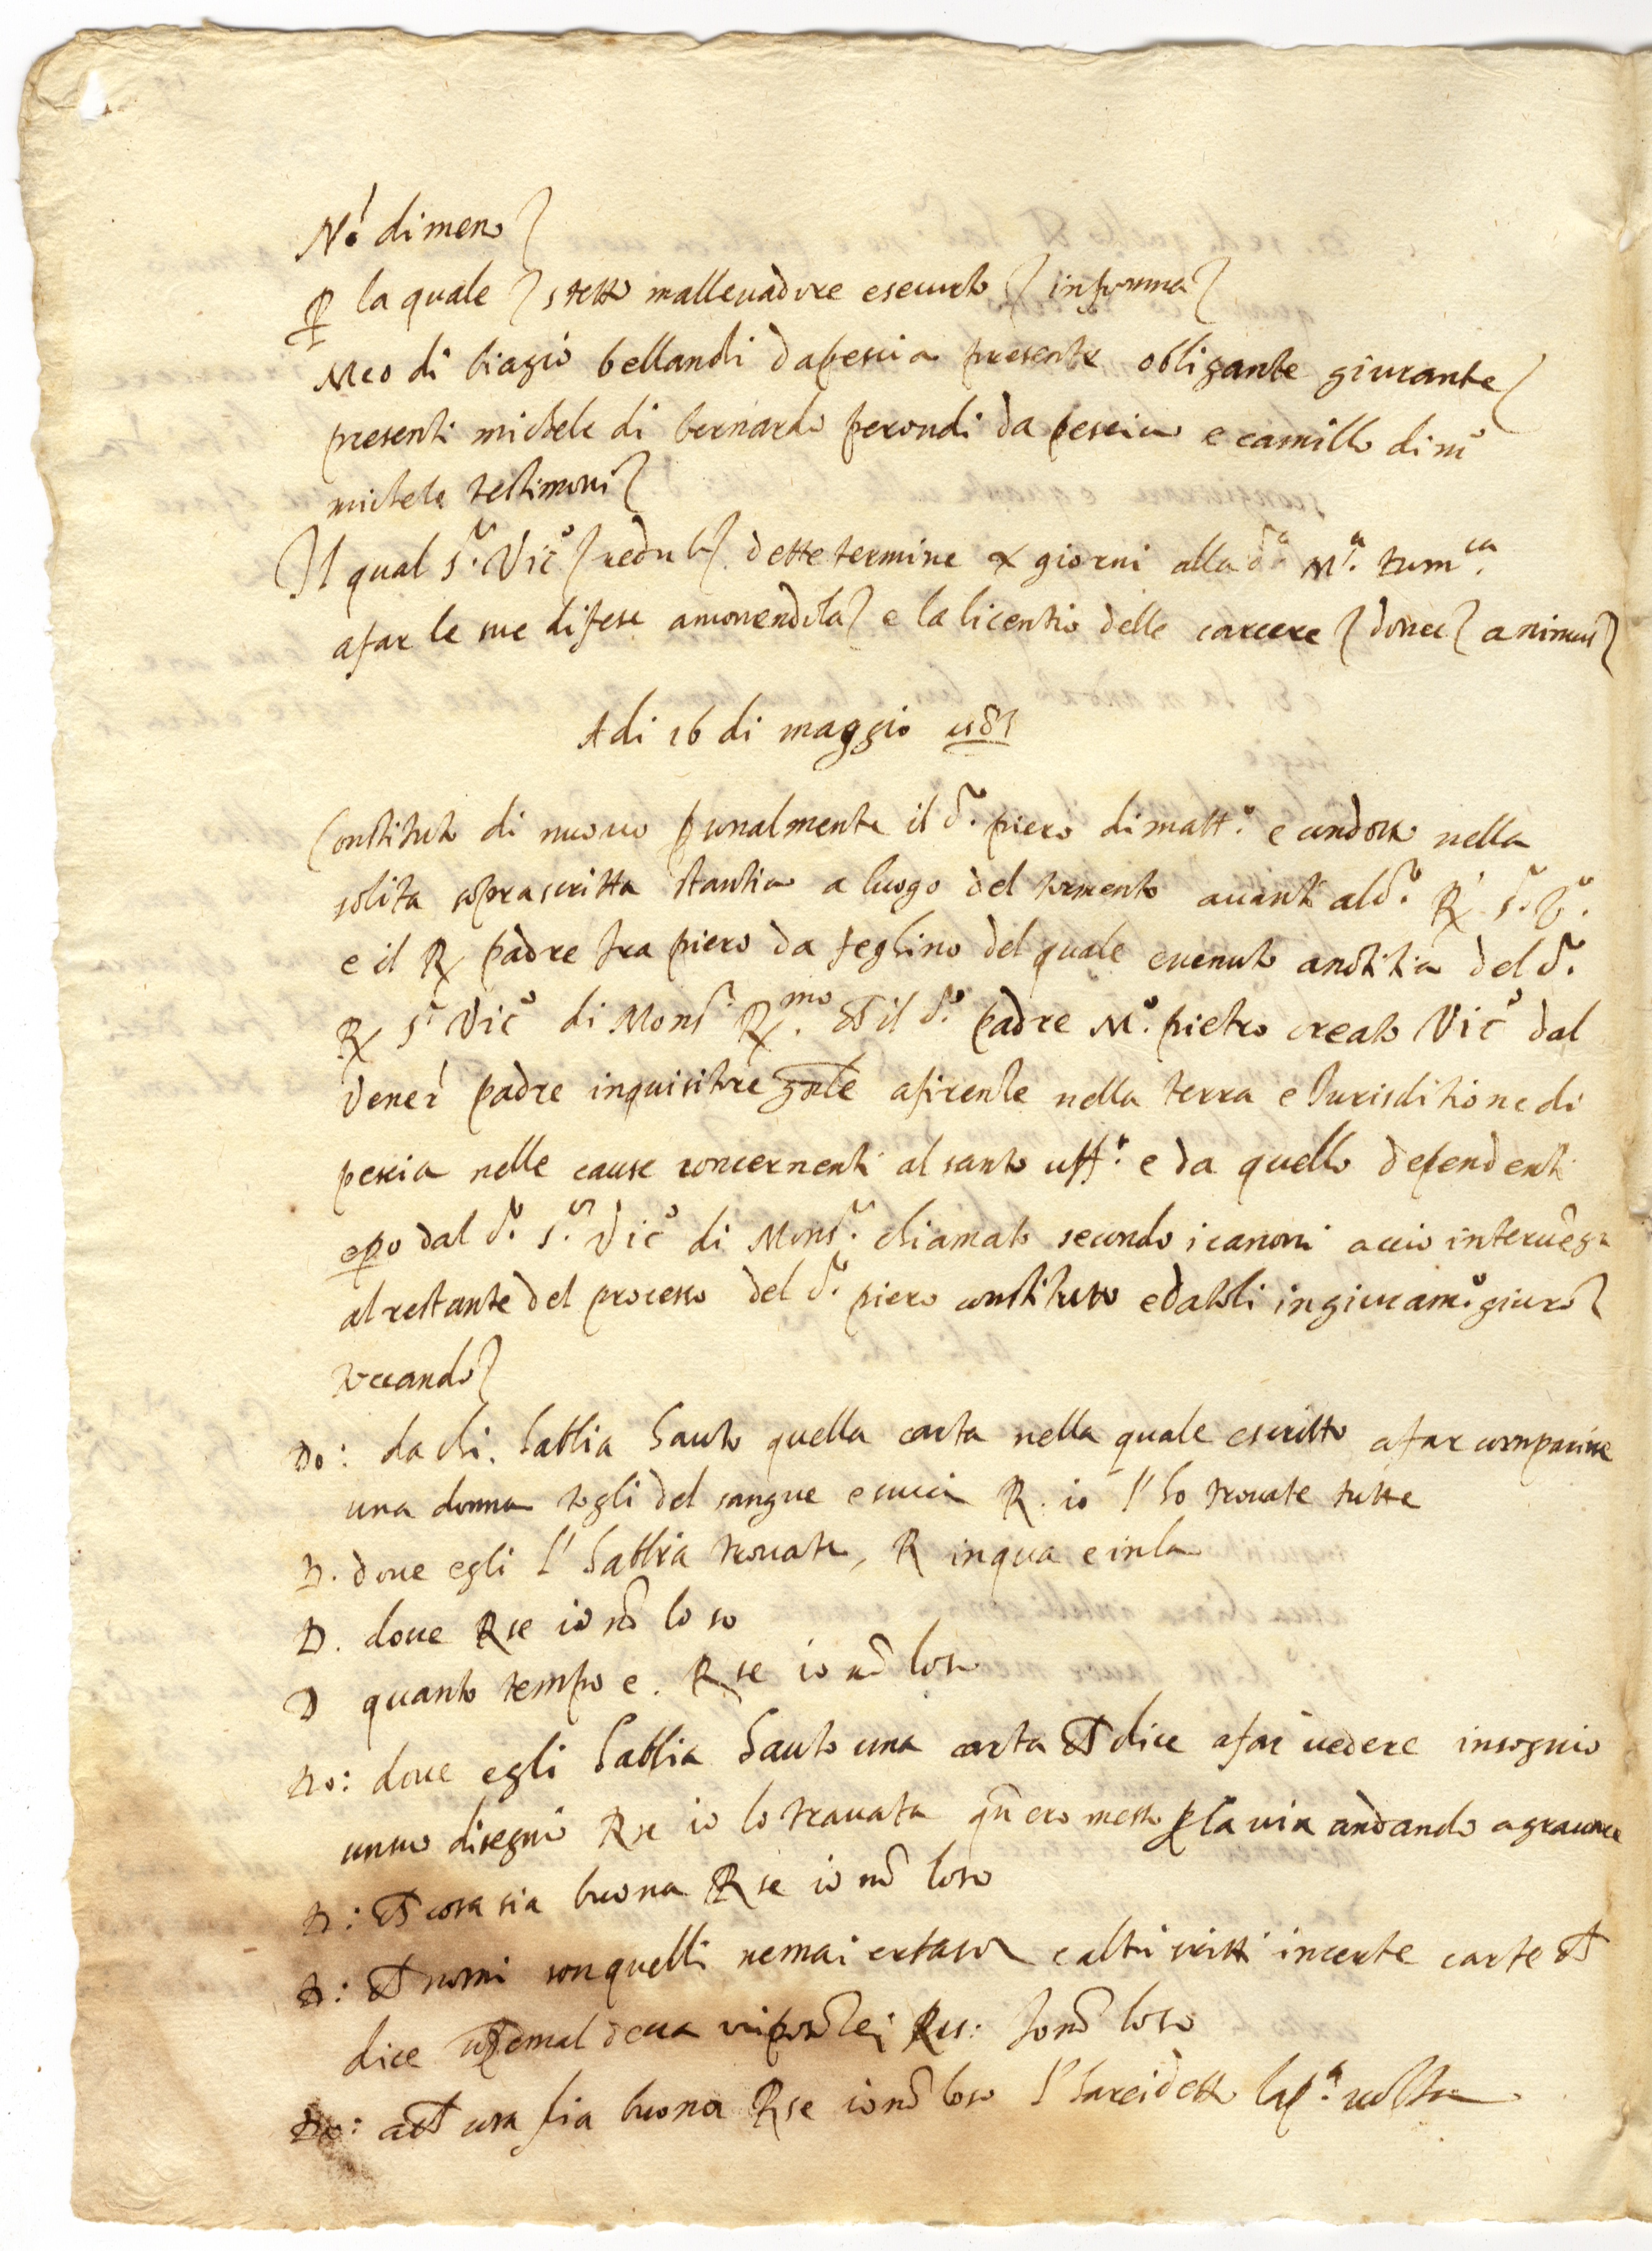 Nõ dimeno
P la quale stetto mallevadore esecurto informa
Meo di biagio bellandi dapescia presente obligante giurante
presenti michele di bernardo perondi da pescia e camillo di mº
michele testimoni
Il qual s.r Vicº redub dette termine x giorni alla d.a M.a tum.ca
afar le sue difese amonendola e la licentio delle carcere donec animus
Adi 16 di maggio
Constituto di nuovo psonalmente il d.º piero di matt.º e condotto nella
solita soprascritta stantia a luogo del tormento avanti al d.º R s.r V.º
e il R padre fra piero da feghino del quale evenuto anotitia del d.º
R s.r Vicº di Mons.r R.mo et il d.º padre M.º pietro creato Vicº dal
Vener padre inquisitore gnle afirenze nella terra e Jurisditione di
pescia nelle cause concernenti al santo uff.º e da quello dependenti
epo dal d.º s.or Vicº di Mons.r chiamato secondo i canoni accio intervẽga
al restante del processo del d.º piero constituto edatoli ingiuram.º giuro
toccando
Dº: da chi habbia hauto quella carta nella quale escritto afar comparire
una donna togli del sangue R. io l'ho trovate tutte
D. dove egli l'habbia trovate, R inqua einla
D. dove Rse io nõ lo so
D quanto tempo e. Rse io nõ loso
Dº: dove egli habbia hauto una carta che dice afar vedere insognio
unsuo disegnio Rse io lo trovata qñ ero messo p la via andando
D: che cosa sia buona Rse io nõ loso
D: che nomi sonquelli nemai e altri scritti incerte carte che
dice Res: Jo nõ loso
Dº: ache cosa sia buona Rse io nõ loso l'harei detto lap.a volta